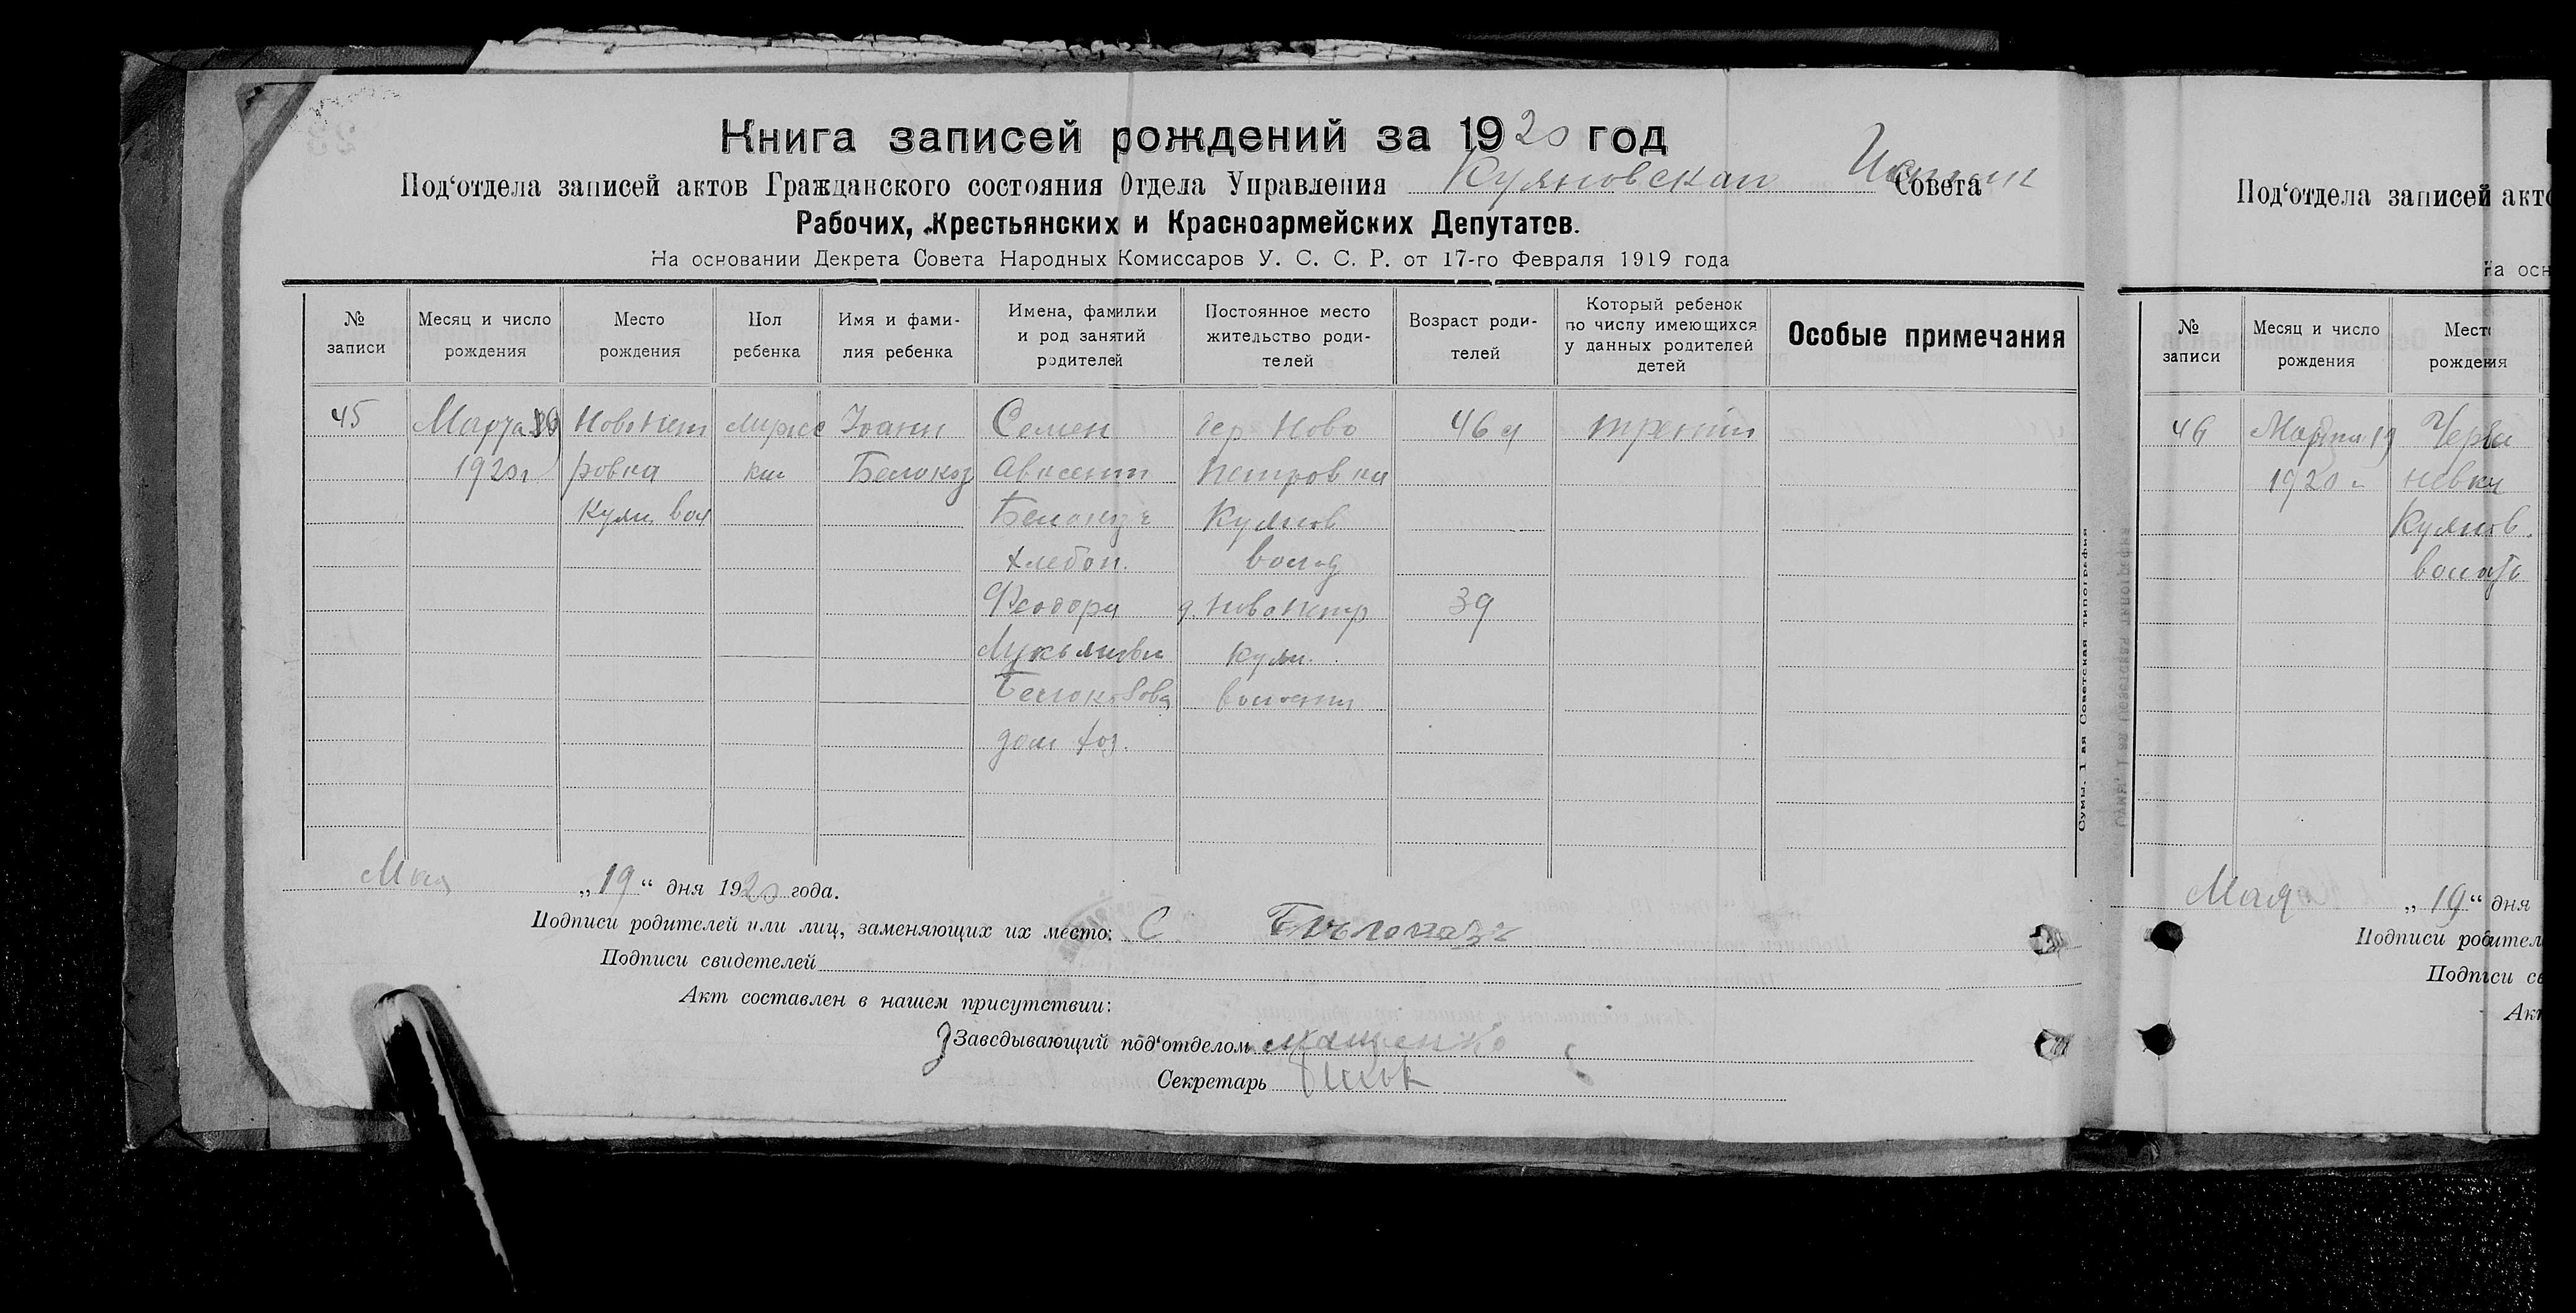 Книга записей рождений за 1920 год
Под‘отдела записей актов Гражданского состояния Отдела Управления Куяновская Совета
Рабочих, Крестьянских и Красноармейских Депутатов.
На основании Декрета Совета Народных Комиссаров У. С. С. Р. от 17-го Февраля 1919 года
№ записи
Месяц и число рождения
Место рождения
Пол ребенка
Имя и фами-
лия ребенка
Имена, фамилии
и род занятий
родителей
Постоянное место
жительство роди-
телей
Возраст роди-
телей
Который ребенок
по числу имеющихся
у данных родителей
детей
Особые примечания
45
Марта
1920 г
Ново Пет
ровка
Куян вол
мужс
кий
Иоанн
Белокоз
Семен
Авксент
Белокоз
хлебоп.
Феодора
Лукьянова
Белокозова
дом хоз.
дер Ново
Петровка
Куянов
волос
д. Ново Петр
Куян.
волости
46 л
39
третий
Мая „19“ дня 1920 года.
Подписи родителей или лиц, заменяющих их место: С Бѣлоказъ
Подписи свидетелей
Акт составлен в нашем присутствии:
Заведывающий под‘отделом
Секретарь
Сумы. 1-ая Советская типография
Под‘отдела записей акто
На осн
№ записи
Месяц и число рождения
Место
рождения
46
Марта 19
1920 г
Черва
невка
Куянов.
волость
Мая „19“ дня
Подписи родител
Подписи св
Акт